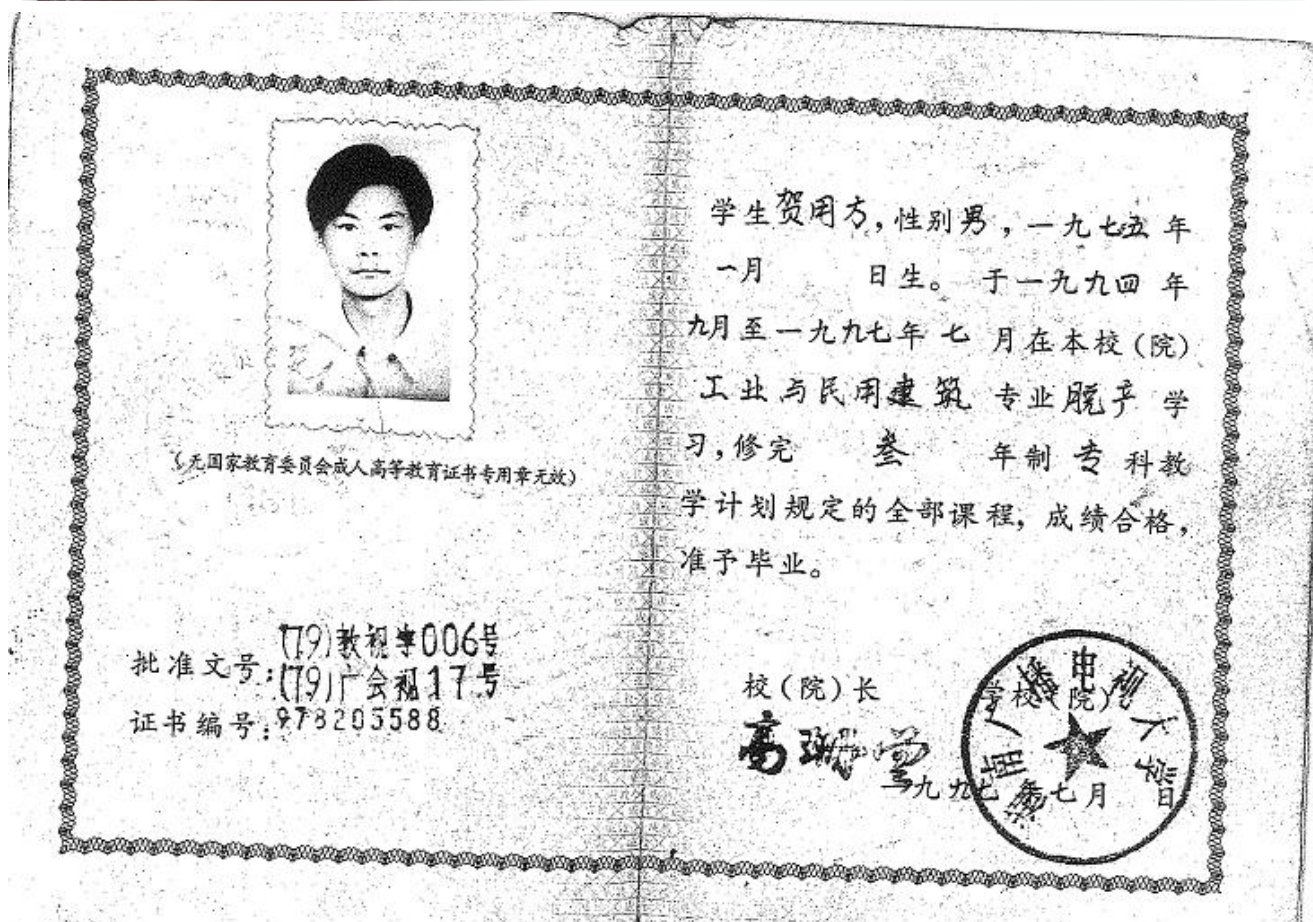 (无国家教育委员会成人高等教育证书专用章无效)
批准文号:(79)教视字006号
(79)广会视17号
证书编号:978203588
学生贺用方,性别男,一九七五年
一月 日生。于一九九四年
九月至一九九七年七月在本校(院)
工业与民用建筑专业脱产学
习,修完叁年制专科教
学计划规定的全部课程,成绩合格,
准予毕业。
校(院)长 学校(院)
湖南广播电视大学
一九九七年七月 日